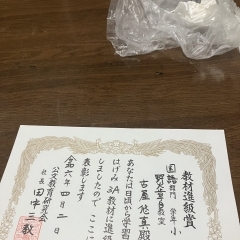 教材進級賞
国語部門 学年 小
教室
古屋 悠真殿
あなたは日頃から学習
にはげみ 3A教材に進級
しましたので ここに
表彰します
令和六年四月二日
公文教育研究会
社長 田中三教